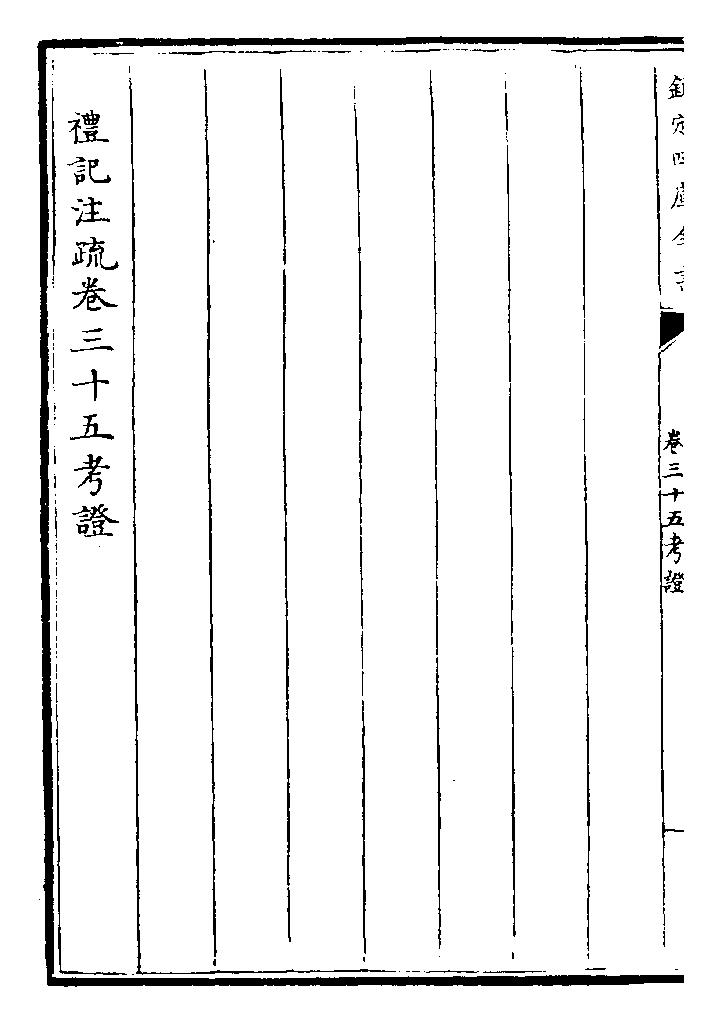 欽定四庫全書
卷三十五考證
禮記注疏卷三十五考證